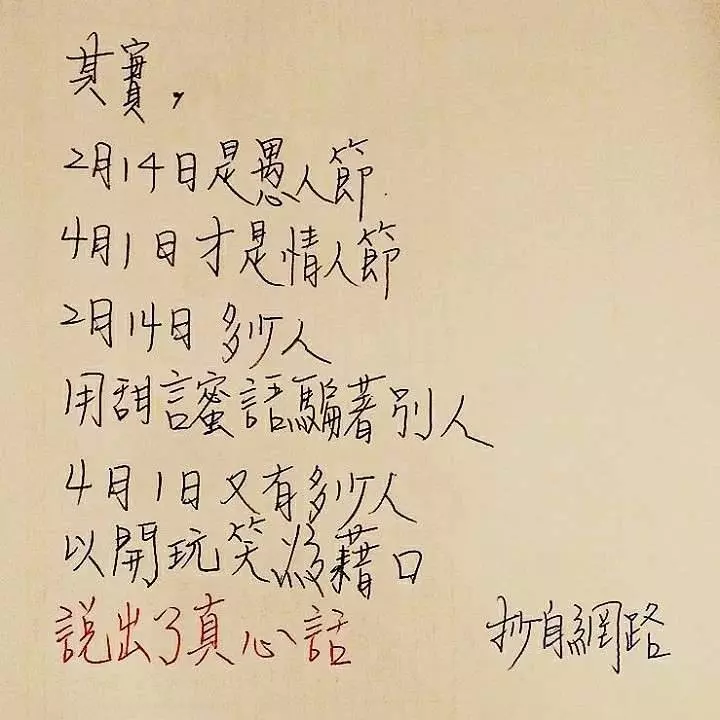 其實，
2月14日是愚人節
4月1日才是情人節
2月14日 多少人
用甜言蜜語騙著別人
4月1日又有多少人
以開玩笑為藉口
說出了真心話
抄自網路